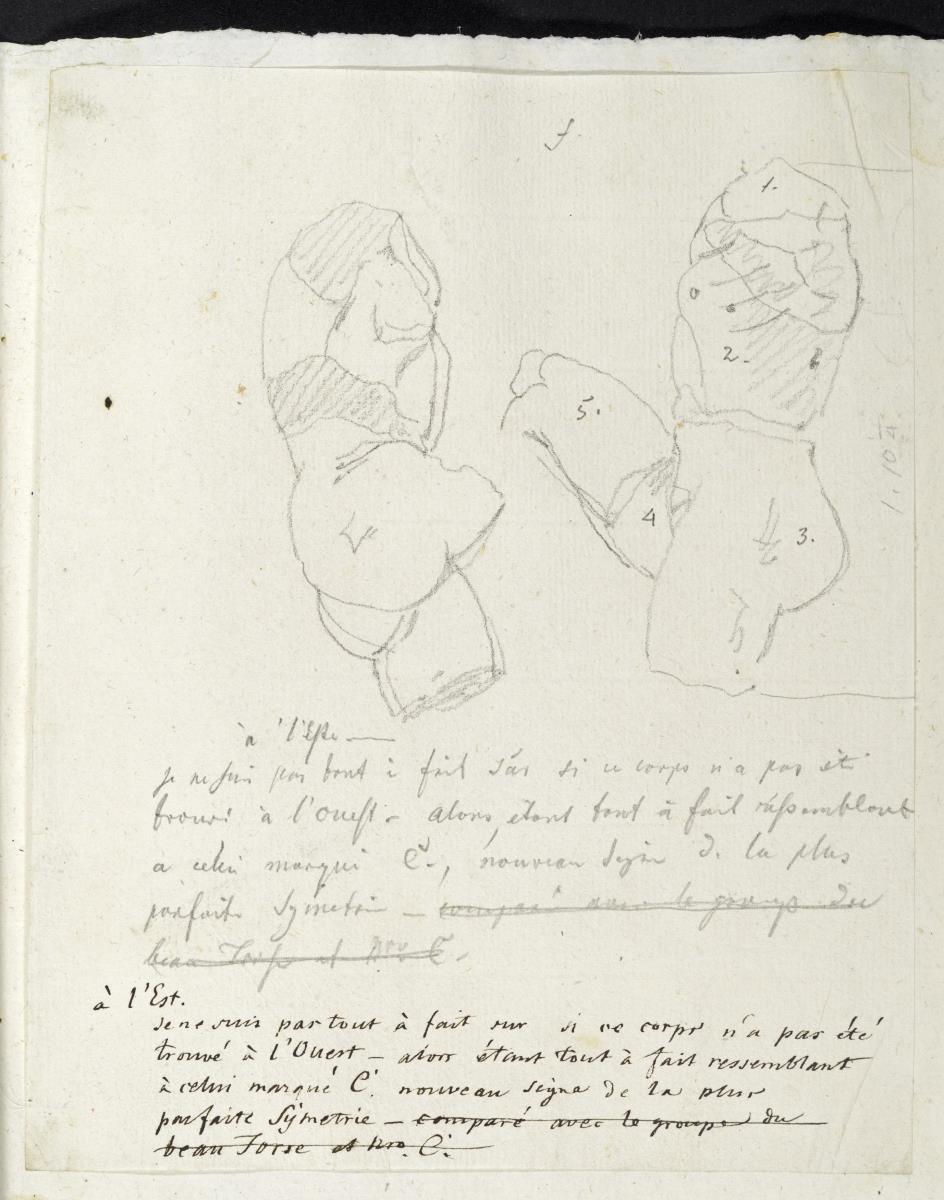 f.
1.
2.
3.
4
5.
1. 10 1/4
à l'Est
je ne suis pas tout à fait sûr si ce corps n'a pas été
trouvé à l'Ouest - alors, étant tout à fait ressemblant
a celui marqué C., nouveau Signe d. la plus
parfaite Symetrie - comparé avec le groupe du
beau Torse et Nro C.
à l'Est.
Je ne suis pas tout à fait sur si ce corps n'a pas été
trouvé à l'Ouest - alors étant tout à fait ressemblant
à celui marqué C. nouveau signe de la plus
parfaite Sÿmetrie - comparé avec le groupe du
beau Torse et Nro. C.